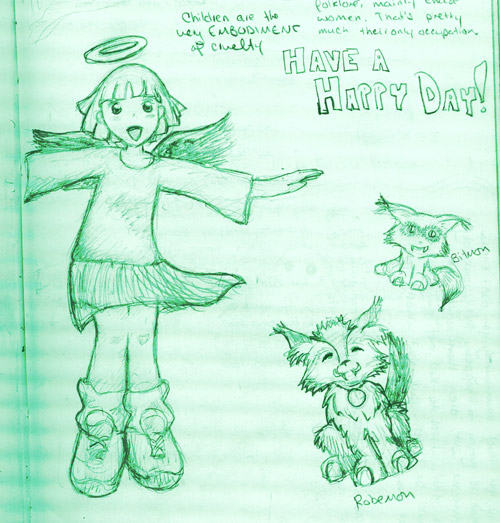 Children are the
very EMBODIMENT
of cruelty
folklore, mainly
women. That's pretty
much their only occupation.
HAVE A
HAPPY DAY!
Bitmon
Robemon